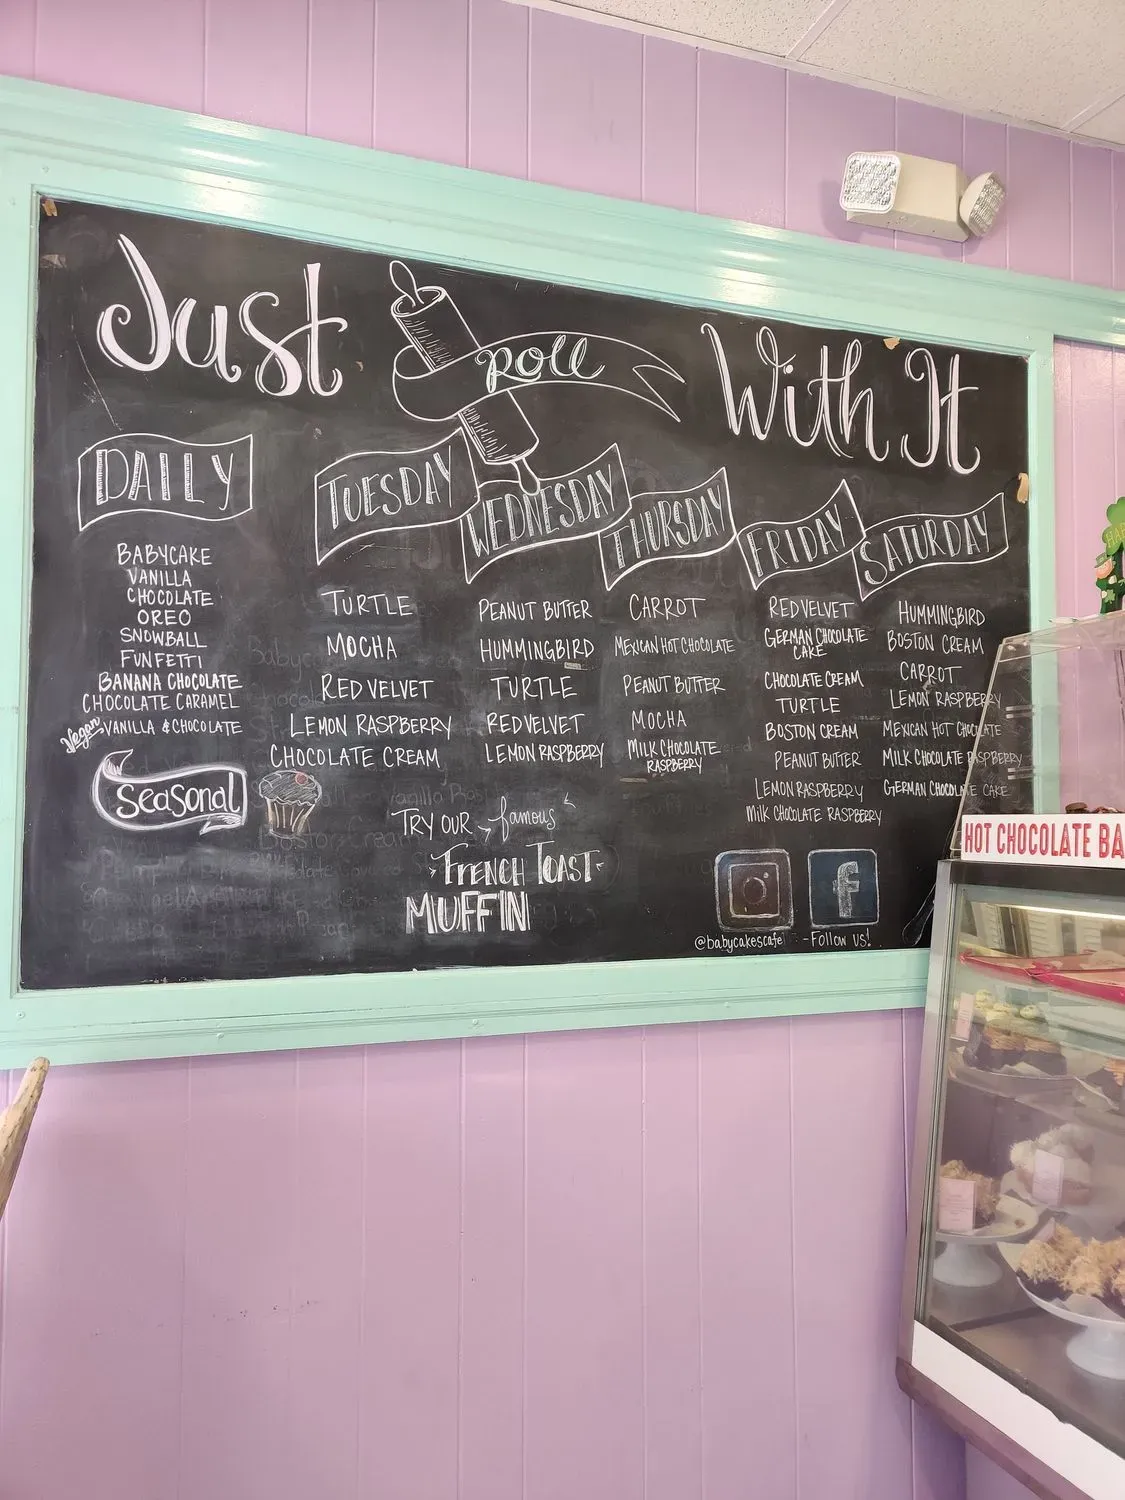 Just Roll With It
DAILY
BABYCAKE
VANILLA
CHOCOLATE
OREO
SNOWBALL
FUNFETTI
BANANA CHOCOLATE
CHOCOLATE CARAMEL
Vegan VANILLA & CHOCOLATE
Seasonal
TUESDAY
TURTLE
MOCHA
RED VELVET
LEMON RASPBERRY
CHOCOLATE CREAM
WEDNESDAY
PEANUT BUTTER
HUMMINGBIRD
TURTLE
RED VELVET
LEMON RASPBERRY
THURSDAY
CARROT
MEXICAN HOT CHOCOLATE
PEANUT BUTTER
MOCHA
MILK CHOCOLATE
RASPBERRY
FRIDAY
RED VELVET
GERMAN CHOCOLATE
CAKE
CHOCOLATE CREAM
TURTLE
BOSTON CREAM
PEANUT BUTTER
LEMON RASPBERRY
Milk CHOCOLATE RASPBERRY
SATURDAY
HUMMINGBIRD
BOSTON CREAM
CARROT
LEMON RASPBERRY
MEXICAN HOT CHOCOLATE
MILK CHOCOLATE RASPBERRY
GERMAN CHOCOLATE CAKE
TRY OUR famous
FRENCH TOAST
MUFFIN
@babycakescafe -Follow us!
HOT CHOCOLATE BA